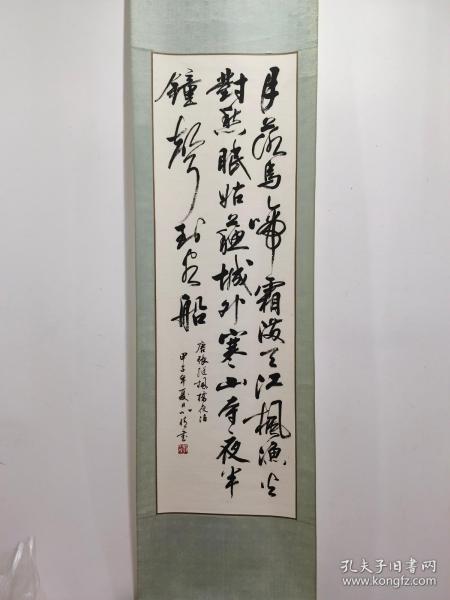 月落烏啼霜滿天江楓漁火
對愁眠姑蘇城外寒山寺夜半
鐘聲到客船
唐張繼楓橋夜泊
甲子年夏日
孔夫子旧书网
www.kongfz.com